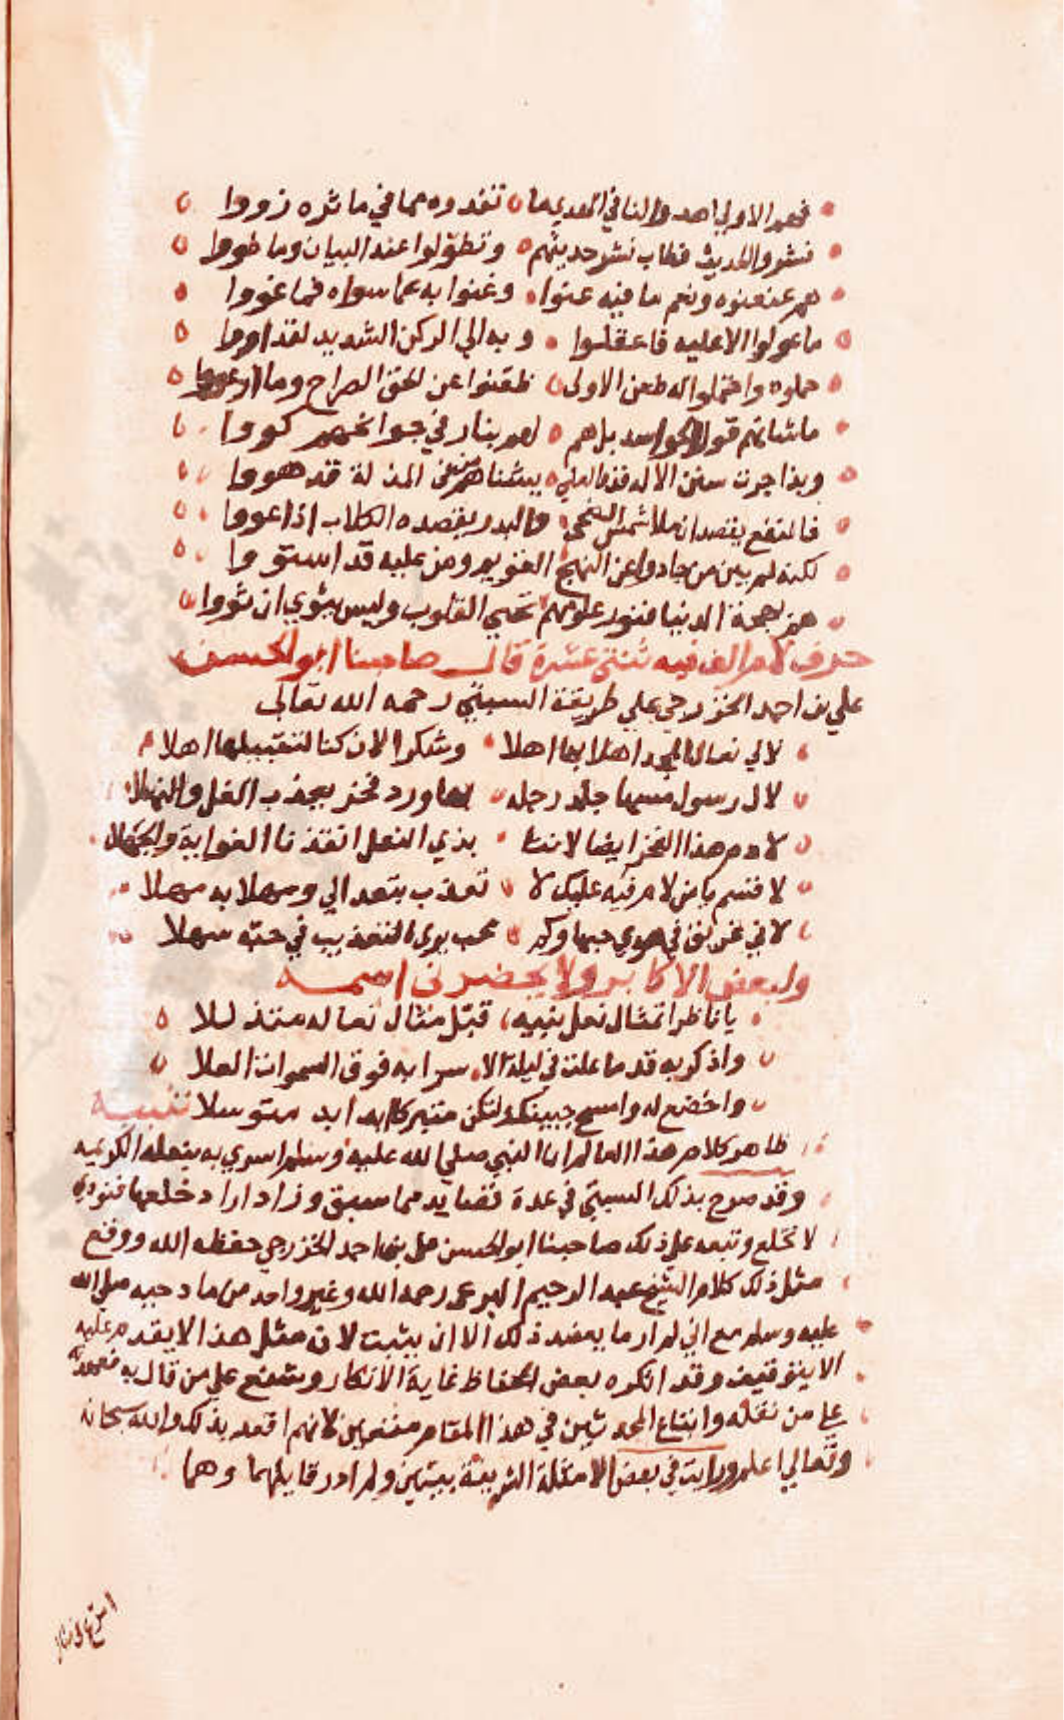 فهم الاولى اهدوا لنا في
نشروا الحديث فطاب نشر حديثهم وتطولوا عند البيان وما طووا
هم عنعنوه ونعم ما فيه عنوا وغنوا به عما سواه فما غووا
ما عولوا الا عليه فاعقلوا وبه الى الركن الشديد لقد اووا
حملوه واحتملوا له طعن الاولى ظعنوا عن الحق الصراح وما ارعووا
ما شانهم قول الحواسد بل هم لهم بنار في جوانحهم كووا
وبذا جرت سنن الاله المذلة قد هووا
فالنقع يقصد ان شمس الضحى والبدر يقصده الكلاب اذا عووا
لكنه لم يبن من حادوا عن النهج القويم ومن عليه قد استووا
هم بهجة الدنيا فنور علومهم تحيي القلوب وليس يثوي ان ثووا
حرف لام الف فيه ثنتى عشرة قال صاحبنا ابو الحسن
علي بن احمد الخزرجي علي طريقة السبتي رحمه الله تعالى
لالي نعال المجد اهلا بها اهلا وشكرا لان كنا لتقبيلها اهلا
لال رسول جلد رجله ورد فخر يعذب العل والنهلا
لادم هذا الفخر ايضا لاننا بذي النعل انقذنا الغواية والجهلا
لا فتسم يا من لام فيه عليك لا تعذب بتعدالي ومهلا به مهلا
لاني في هوي حبها وكم محب يرى التعذيب في حبه سهلا
ولبعض الاكابر ولا يحضرني اسمه
يا ناظرا تمثال نعل نبيه قبل مثال نعاله متذللا
واذكر به قدما علت في ليلة الاسرا به فوق السموات العلا
واخضع له وامسح جبينك ولتكن متبركا به ابد متوسلا تنبيه
ظاهر كلام هذا العالم ان النبي صلي الله عليه وسلم اسري به بنعله الكريمه
وقد صرح بذلك السبتي في عدة قصايد مما سبق وزاد اراد خلعها فنودي
لا تخلع وتبعه علي ذلك صاحبنا ابو الحسن علي بن احمد الخزرجي حفظه الله ووقع
مثل ذلك كلام الشيخ عبد الرحيم البرعي رحمه الله وغير واحد من مادحيه صلي الله
عليه وسلم مع اني لم ار ما يعضد ذلك الا ان يثبت لان مثل هذا لا يقدم عليه
الا بتوقيف وقد انكره بعض الحفاظ غاية الانكار وشنع علي من قال به فعهدته
علي من نقله واتباع المحدثين في هذا المقام متعين لانهم اقعد بذلك والله سبحانه
وتعالي اعلم ورايت في بعض الامثلة الشريفة بيتين ولم ادر قايلهما وهما